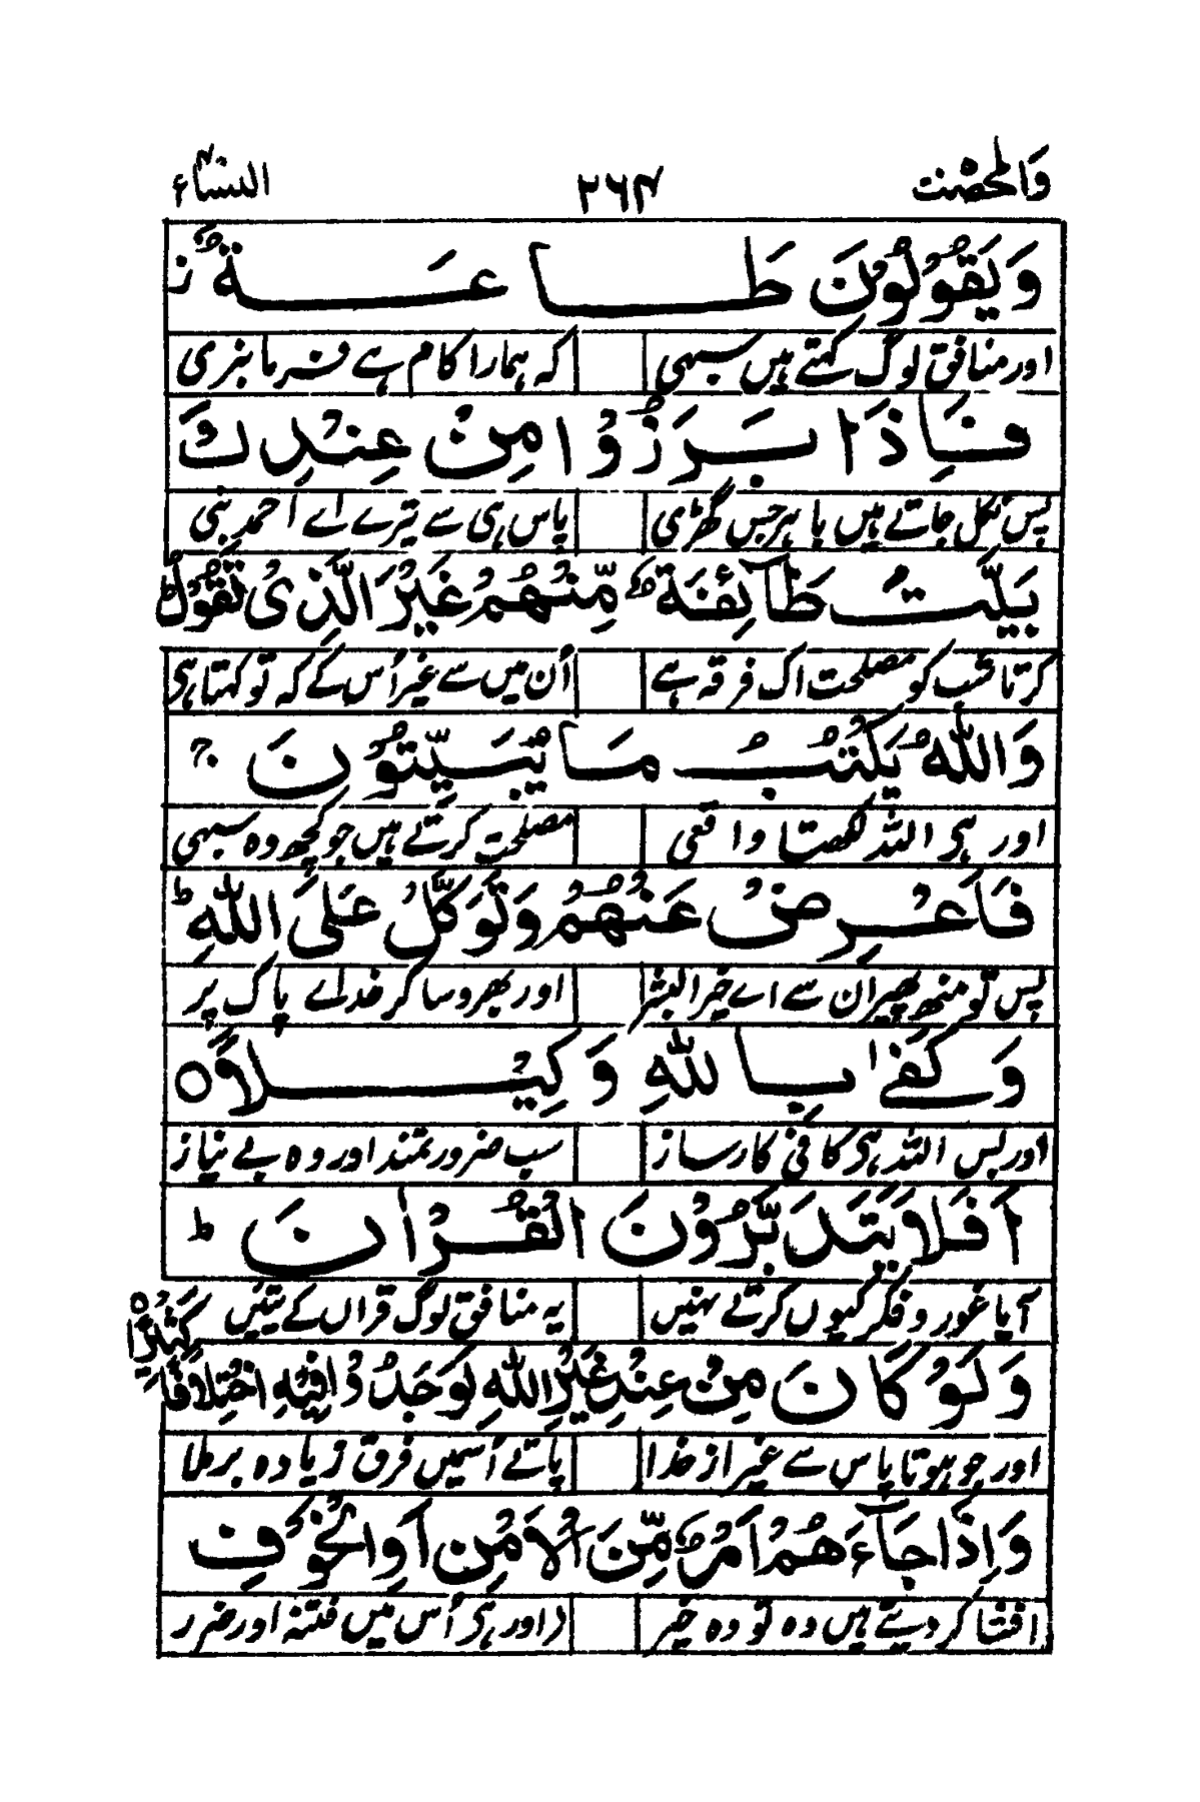 والمحصنت ۲۶۴ النساء ۴
وَيَقُولُونَ طَاعَةٌ ز
اور منافق لوگ کہتے ہیں سبہی کہ ہمارا کام ہے فرمانبری
فَاِذَا بَرَزُوْا مِنْ عِنْدِكَ
پس نکل جاتے ہیں باہر جس گھڑی پاس ہی سے تیرے اے احمد نبی
بَيَّتَ طَآئِفَةٌ مِّنْهُمْ غَيْرَ الَّذِىْ تَقُوْلُ ط
کرتا شب کو مصلحت اک فرقہ ہے اُن میں سے غیر اُس کے کہ تو کہتا ہی
وَاللّٰهُ يَكْتُبُ مَا يُبَيِّتُوْنَ ج
اور ہی اللہ لکھتا واقعی مصلحت کرتے ہیں جو کچھ وہ سبہی
فَاَعْرِضْ عَنْهُمْ وَتَوَكَّلْ عَلَى اللّٰهِ ط
پس تو منھ پھیر ان سے اے خیر البشر اور بھروسا کر خدائے پاک پر
وَكَفٰى بِاللّٰهِ وَكِيْلًا ○
اور بس اللہ ہی کافی کارساز سب ضرورتمند اور وہ بے نیاز
اَفَلَا يَتَدَبَّرُوْنَ الْقُرْاٰنَ ط
آیا غور و فکر کیوں کرتے نہیں یہ منافق لوگ قراں کے تئیں
وَلَوْ كَانَ مِنْ عِنْدِ غَيْرِ اللّٰهِ لَوَجَدُوْا فِيْهِ اخْتِلَافًا كَثِيْرًا ○
اور جو ہوتا پاس سے غیر از خدا پاتے اُسمیں فرق زیادہ برملا
وَاِذَا جَآءَهُمْ اَمْرٌ مِّنَ الْاَمْنِ اَوِ الْخَوْفِ
افشا کر دیتے ہیں وہ تو وہ خبر (اور ہی اُس میں فتنہ اور ضرر